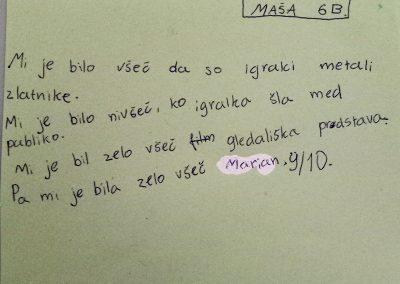 MAŠA 6B.
Mi je bilo všeč da so igralci metali
zlatnike.
Mi je bilo nivšeč, ko igralka šla med
publiko.
Mi je bil zelo všeč film gledališka predstava.
Pa mi je bila zelo všeč Marian. 9/10.